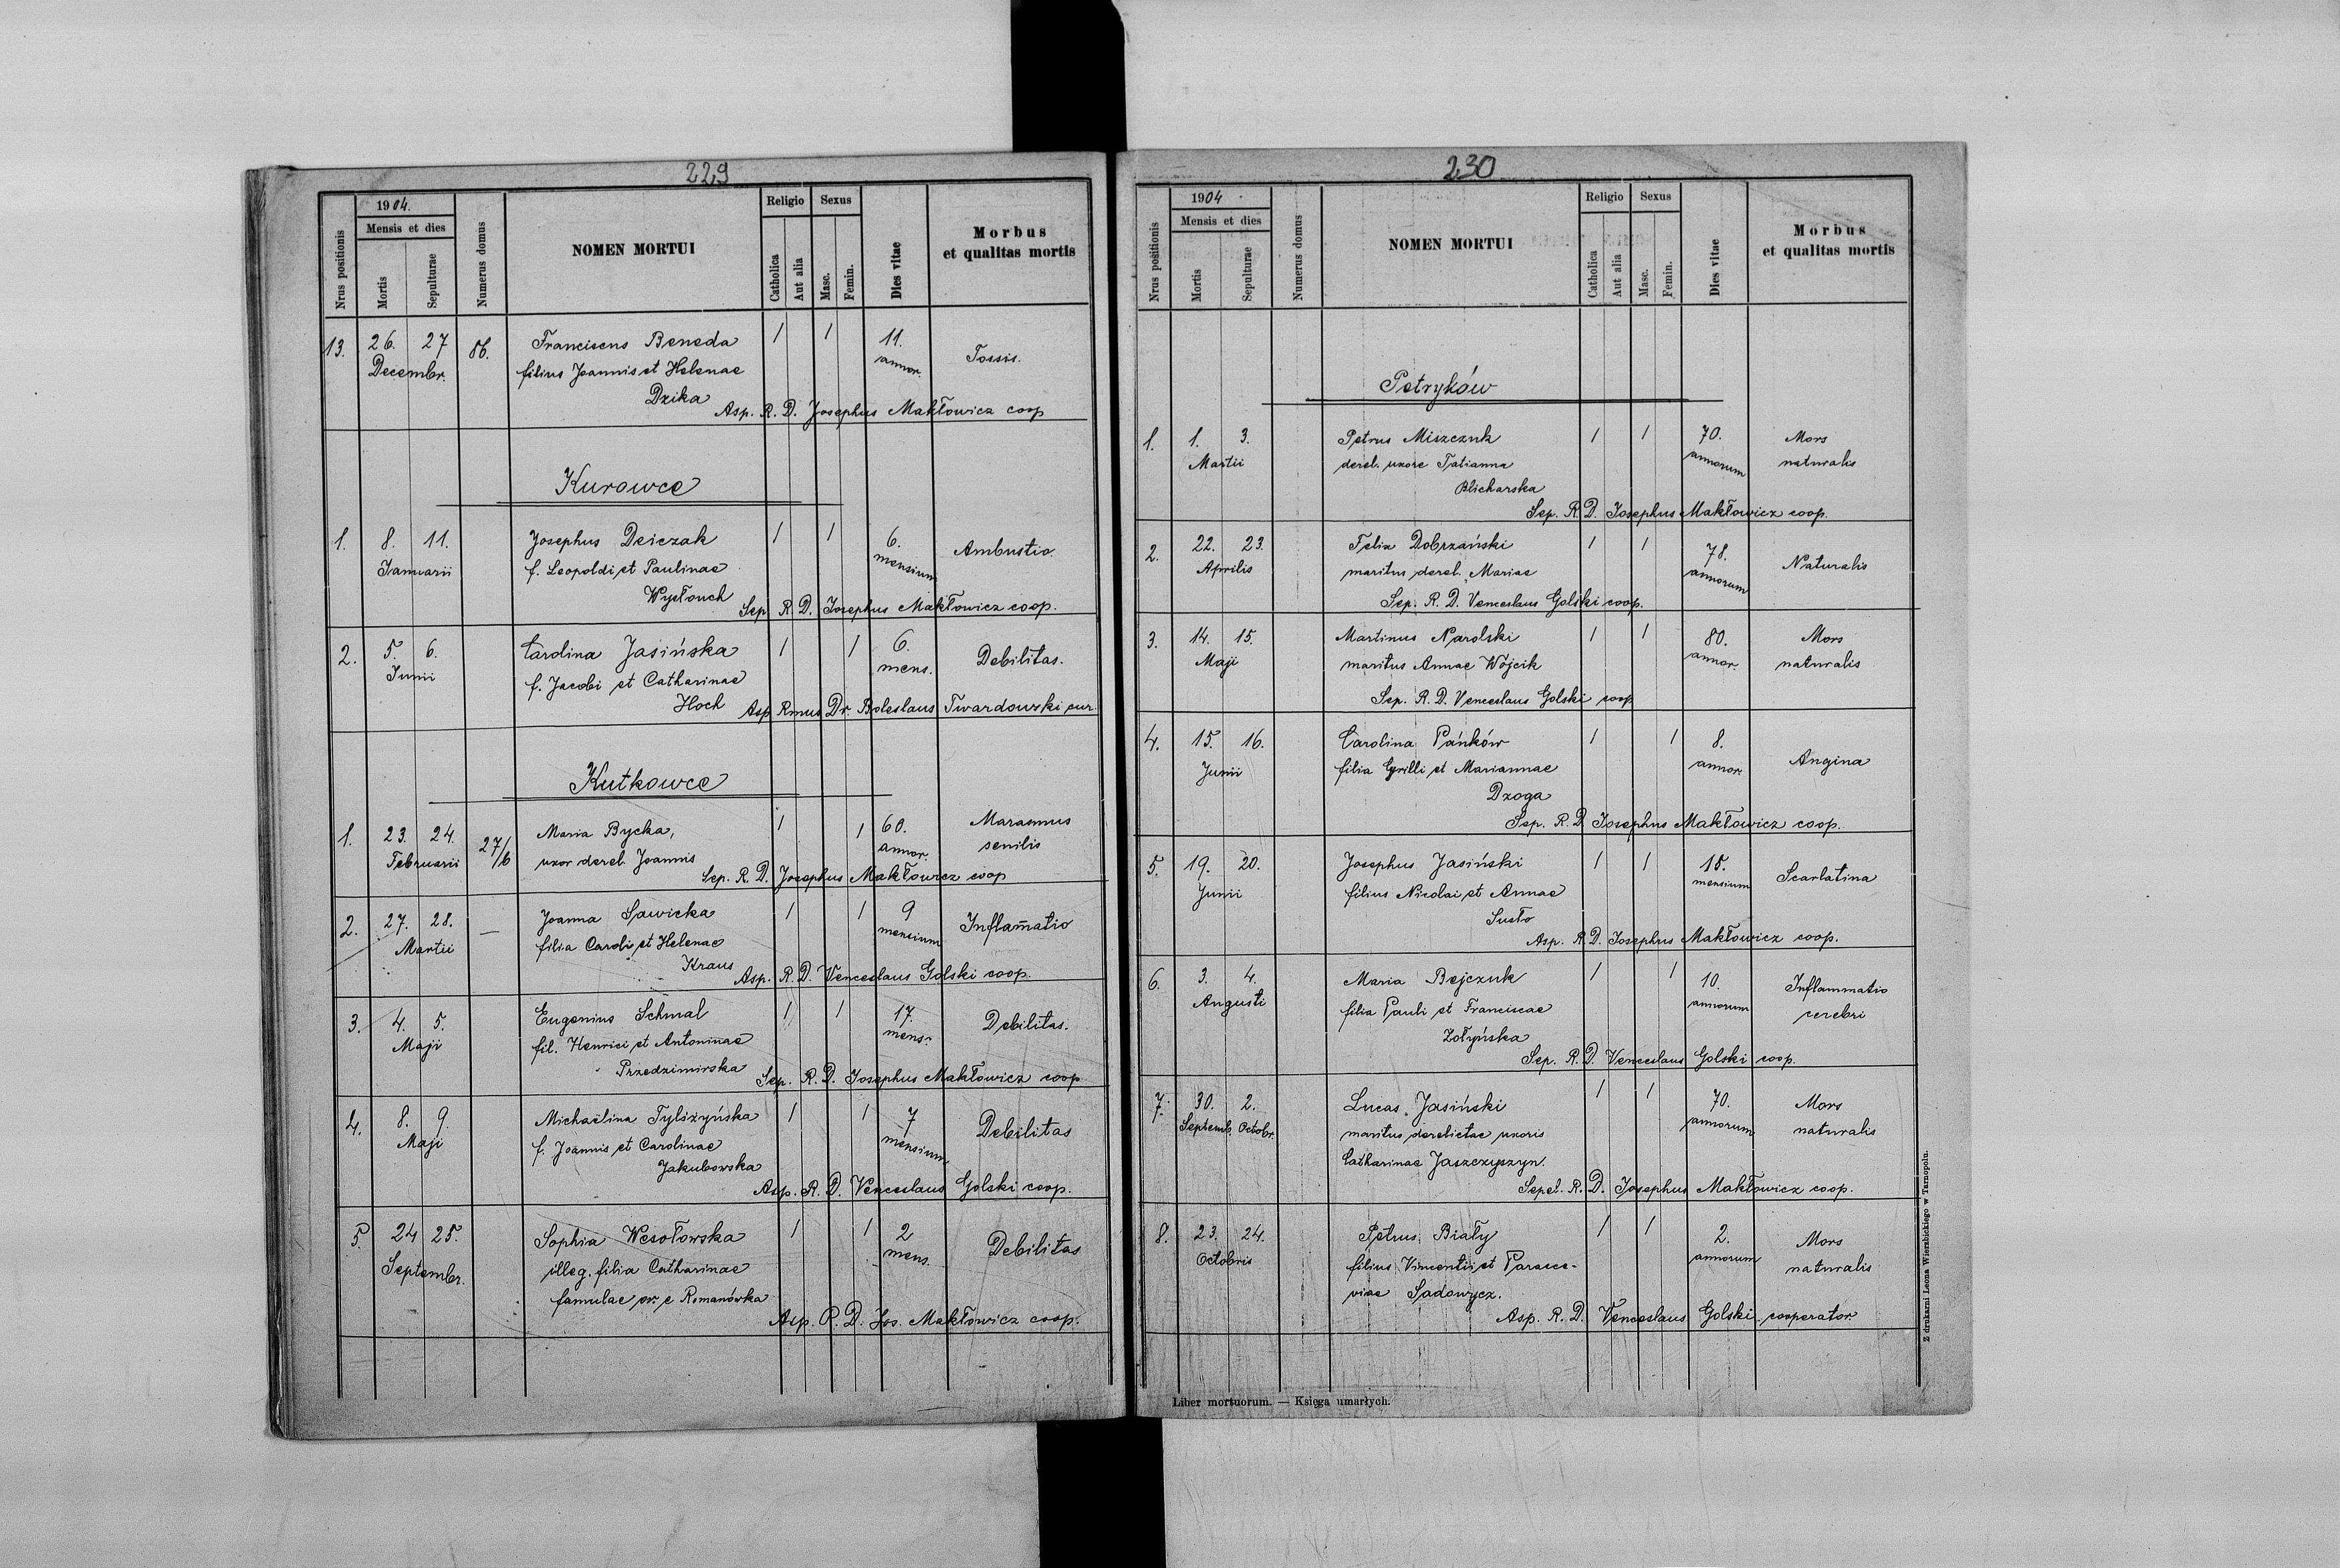 229
1904.
Religio Sexus
Mensis et dies
Nrus positionis Mortis Sepulturae Numerus domus NOMEN MORTUI Catholica Aut alia Masc. Femin. Dies vitae Morbus et qualitas mortis
13. 26. 27 86. Franciscus Beneda / / 11. Tossis.
Decembr. filius Joannis et Helenae annor.
Dzika
Asp. R. D. Josephus Makłowicz coop
Kurowce
1. 8. 11. Josephus Deiczak / / 6. Ambustio.
Januarii f. Leopoldi et Paulinae mensium
Wysłouch
Sep. R. D. Josephus Makłowicz coop.
2. 5. 6. Carolina Jasińska / / 6. Debilitas.
Junii f. Jacobi et Catharinae mens.
Hoch
Asp Rmus Dr. Boleslaus Twardowski cur.
Kutkowce
1. 23. 24. 27/b Maria Bycka, / / 60. Marasmus
Februarii uxor derel. Joannis annor. senilis
Sep. R. D. Josephus Makłowicz coop
2. 27. 28. — Joanna Sawicka / / 9 Inflam̄atio
Martii filia Caroli et Helenae mensium
Kraus
Asp. R. D. Venceslaus Golski coop.
3. 4. 5. Eugenius Schmal / / 17. Debilitas.
Maji fil. Henrici et Antoninae mens.
Przedzimirska
Sep. R. D. Josephus Makłowicz coop
4. 8. 9. Michaëlina Tylszyńska / / 7 Debilitas
Maji f. Joannis et Carolinae mensium
Jakubowska
Asp. R. D. Venceslaus Golski coop.
5. 24 25. Sophia Wesołowska / / 2 Debilitas
Septembr. illeg. filia Catharinae mens.
famulae or. e Romanówka
Asp. R. D. Jos. Makłowicz coop.
230
1904
Religio Sexus
Mensis et dies
Nrus positionis Mortis Sepulturae Numerus domus NOMEN MORTUI Catholica Aut alia Masc. Femin. Dies vitae Morbus et qualitas mortis
Petryków
1. 1. 3. Petrus Miszczuk / / 70. Mors
Martii derel. uxore Tatianna annorum naturalis
Blicharska
Sep. R. D. Josephus Makłowicz coop.
2. 22. 23. Felix Dobrzański / / 78. Naturalis
Aprilis maritus derel. Mariae annorum
Sep. R. D. Venceslaus Golski coop.
3. 14. 15. Martinus Narolski / / 80. Mors
Maji maritus Annae Wójcik annor. naturalis
Sep. R. D. Venceslaus Golski coop
4. 15. 16. Carolina Pańków / / 8. Angina
Junii filia Cyrilli et Mariannae annor.
Dzoga
Sep. R. D. Josephus Makłowicz coop.
5. 19. 20. Josephus Jasiński / / 15. Scarlatina
Junii filius Nicolai et Annae mensium
Susło
Asp. R. D. Josephus Makłowicz coop.
6. 3. 4. Maria Bejczuk / / 10. Inflammatio
Augusti filia Pauli et Franciscae annorum cerebri
Zołyńska
Sep. R. D. Venceslaus Golski coop.
7. 30. 2. Lucas Jasiński / / 70. Mors
Septemb. Octobr. maritus derelictae uxoris annorum naturalis
Catharinae Jaszczyszyn.
Sepel. R. D. Josephus Makłowicz coop.
8. 23. 24. Petrus Biały / / 2. Mors
Octobris filius Vincentii et Parasce- annorum naturalis
viae Sadowycz.
Asp. R. D. Venceslaus Golski cooperator
Liber mortuorum. — Księga umarłych.
Z drukarni Leona Wierzbickiego w Tarnopolu.